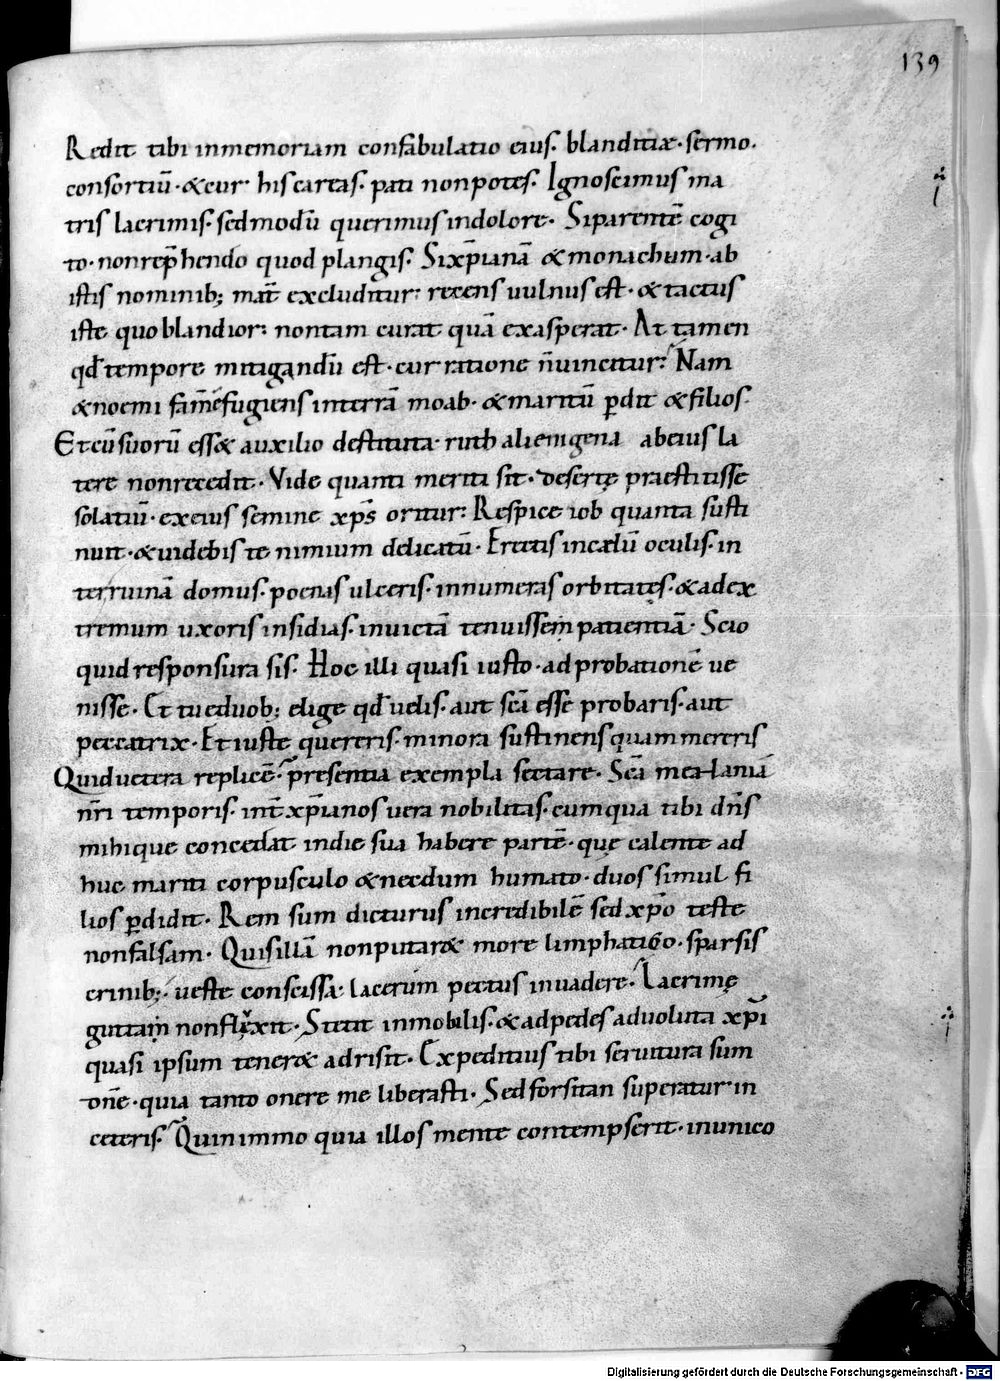 139
Redit tibi inmemoriam confabulatio eius. blanditiæ. sermo.
consortiū. &cur his careas. pati nonpotes. Ignoscimus ma
tris lacrimis. sedmodū querimus indolore. Siparentē cogi
to. nonrep̄hendo quod plangis. Sixp̄ianā &monachum. ab
istis nominib; mat̄ excluditur: recens uulnus est. &tactus
iste quo blandior: nontam curat quā exasperat. At tamen
qd̄ tempore mitigandū est. cur ratione n̄uincitur? Nam
&noemi fam̄efugiens interrā moab. &maritū ꝑdit &filios.
Etcū suorū ess& auxilio destituta. ruth alienigena abeius la
tere nonrecedit. Vide quanti meriti sit. desertę praestitisse
solatiū. exeius semine xp̄s oritur: Respice iob quanta susti
nuit. &uidebis te nimium delicatū. Erectis incælū oculis. in
terruinā domus. poenas ulceris. innumeras orbitates. &adex
tremum uxoris insidias. inuictā tenuissem patientiā. Scio
quid responsura sis. Hoc illi quasi iusto. ad probationē ue
nisse. Et tu eduob; elige qd̄ uelis. aut sc̄a esse probaris. aut
peccatrix. Et iuste quereris. minora sustinens quam mereris
Quid uetera replicē? presentia exempla sectare. Sc̄a melaniā
nr̄i temporis. int̄ xp̄ianos uera nobilitas. cum qua tibi dn̄s
mihique concedat indie sua habere partē. quę calente ad
huc mariti corpusculo &necdum humato. duos simul fi
lios ꝑdidit. Rem sum dicturus incredibilē sed xp̄o teste
nonfalsam. Quis illā nonputar& more limphatico. sparsis
crinib;. ueste conscissa lacerum pectus inuadere? Lacrimę
guttam nonfluxit. Stetit inmobilis. &adpedes aduoluta xp̄i
quasi ipsum tener& adrisit. Expeditius tibi seruitura sum
dn̄e. quia tanto onere me liberasti. Sed forsitan superatur in
ceteris? Quin immo quia illos mente contempserit. inunico
Digitalisierung gefördert durch die Deutsche Forschungsgemeinschaft - DFG